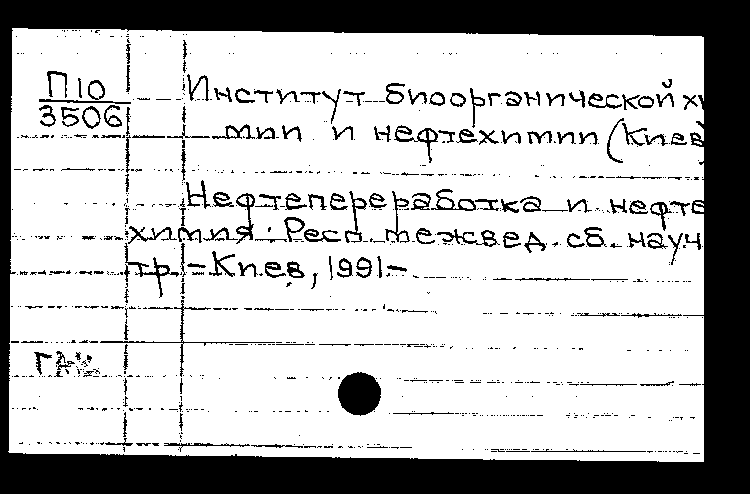 П10
3506
Институт биоорганической хи
мии и нефтехимии (Киев)
Нефтепереработка и нефте
химия: Респ. межвед. сб. науч
тр. – Киев, 1991–